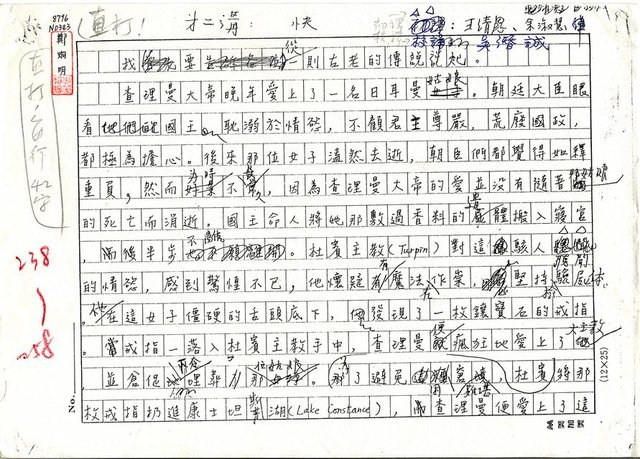 8796
N0383
鄭炯明
直打!
才二溝: 快
直打,每行42字
238
258
我要從一則古老的傳說說起。
查理曼大帝晚年愛上了一名日耳曼姑娘。朝廷大臣眼
看他們的國王耽溺於情慾,不顧君主尊嚴,荒廢國政,
都極為擔心。後來那位女子溘然去逝,朝臣們都覺得如釋
重負,然而好景不常,因為查理曼大帝的愛並沒有隨著那姑娘
的死亡而消逝。國王命人將她那敷過香料的遺體搬入寢宮
,而後半步不離。杜賓主教(Turpin)對這駭人
的情慾,感到驚惶不已,他懷疑有魔法作祟,堅持驗屍体
。他在這女子僵硬的舌頭底下,發現了一枚鑲寶石的戒指
。當戒指一落入杜賓主教手中,查理曼便瘋狂地愛上了主教
,並倉促地埋葬了那姑娘。為了避免難堪,杜賓將那
枚戒指扔進康士坦斯湖(Lake Constance),查理曼便愛上了這
No.
(12×25)